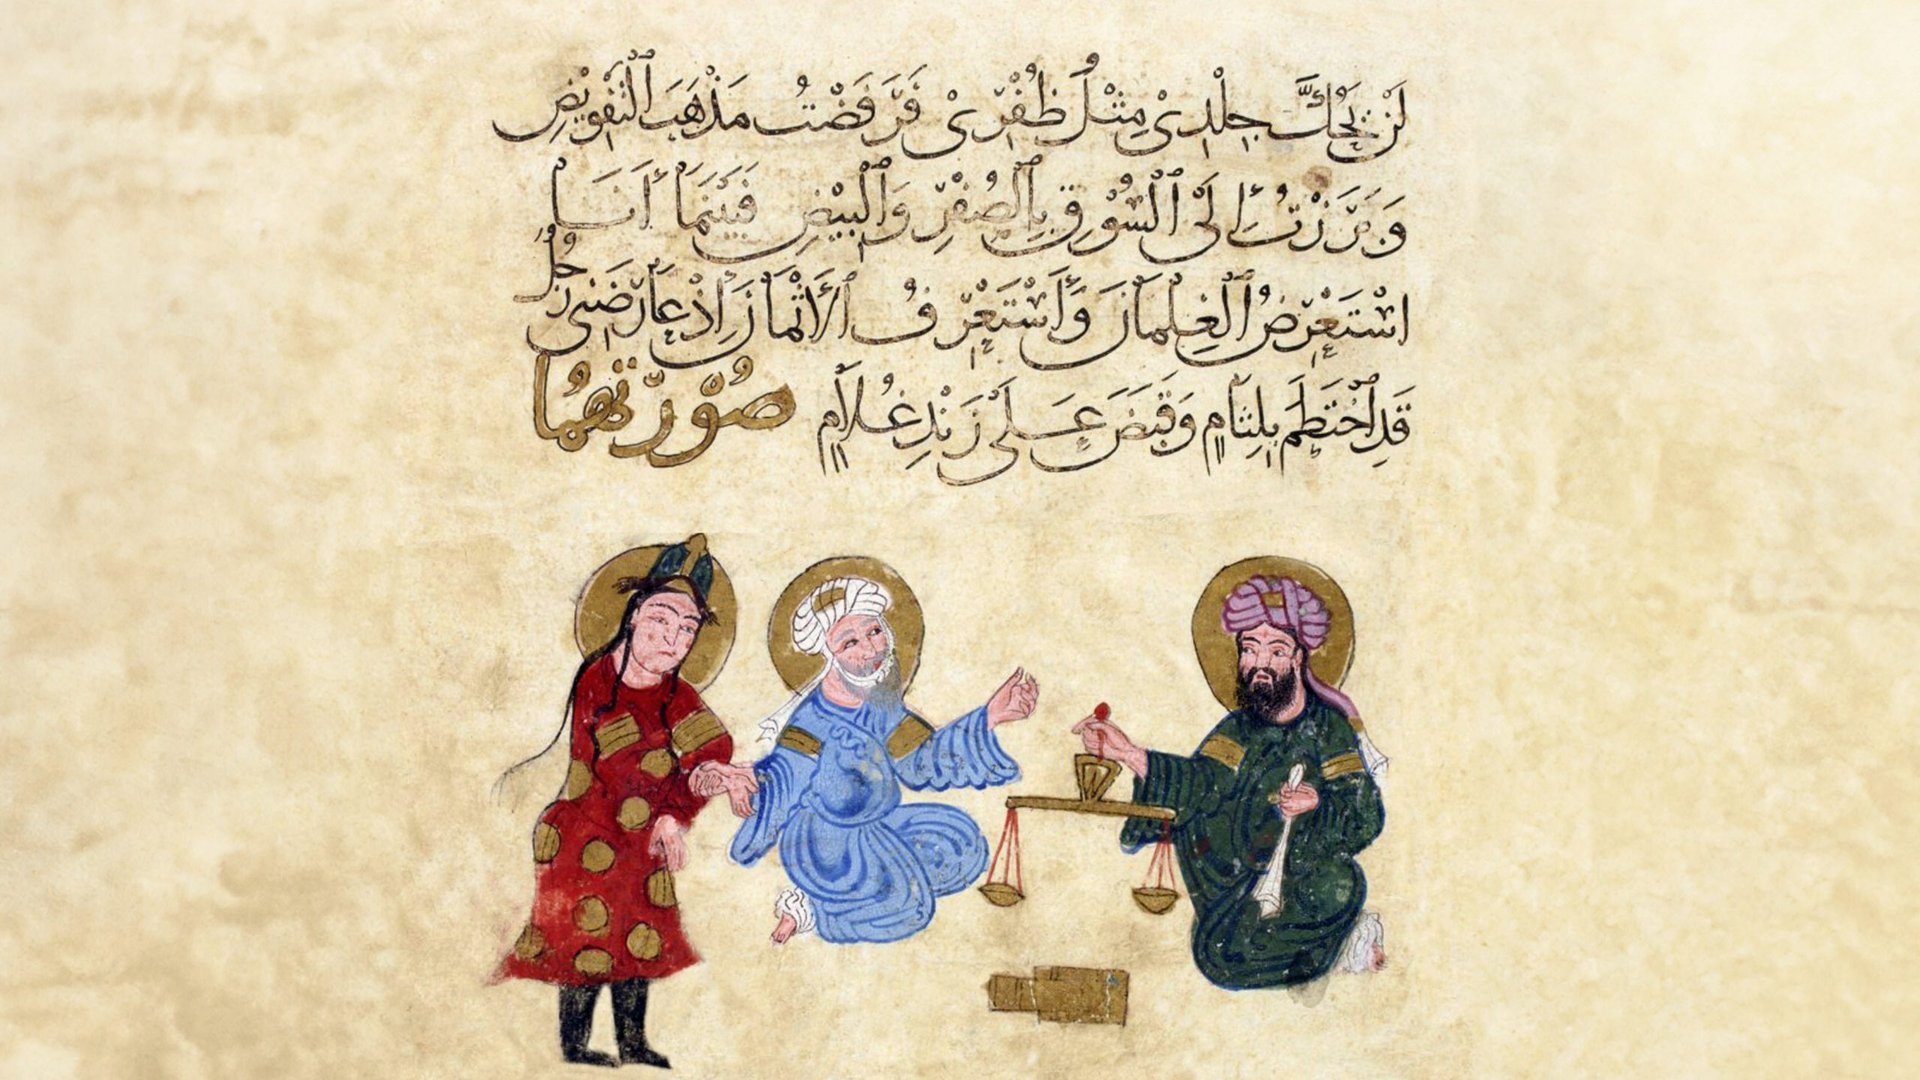 لَنْ يَحُكَّ جِلْدِيْ مِثْلُ ظُفْرِيْ فَرَفَضْتُ مَذْهَبَ ٱلْتَّفْوِيْضِ
وَبَرَزْتُ إِلَىْ ٱلْسُّوْقِ بِٱلْصُفْرِ وَٱلْبِيْضِ فَبَيْنَمَا أَنَا
اسْتَعْرِضُ ٱلْغِلْمَانَ وَأَسْتَعْرِفُ ٱلْأَثْمَانَ إِذْ عَارَضَنِي رَجُلٌ
قَدِ ٱخْتَطَمَ بِلِثَامٍ وَقَبَضَ عَلَىْ زَنْدِ غُلَامٍ صُوْرَتهُمَا